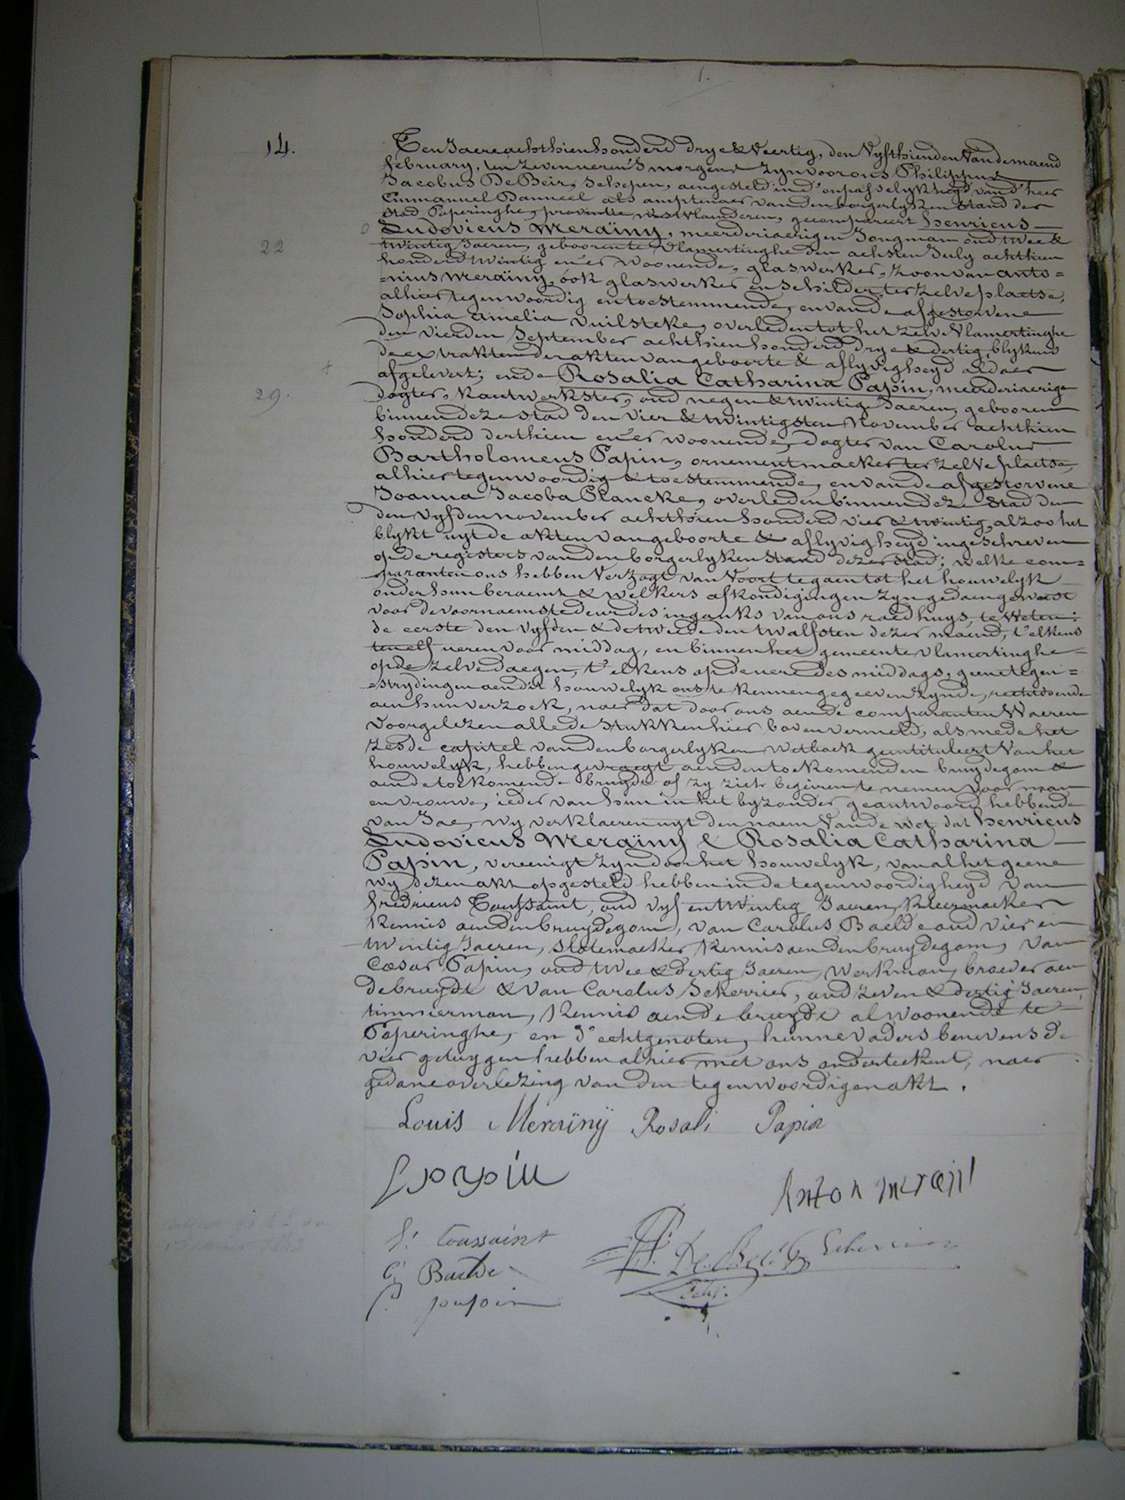 1.
14.
Ten Jaere achthien honderd drye & Veertig, den Vyfthienden Vandemaend
february, ten zeven ueren 's morgens zyn voor ons Philippus
Jacobus De Beir, Schepen, aengesteld ind' onpasselykheyd vand' heer
Emmanuel Banneel als amptenaer van den borgerlyken Stand der
Stad Poperinghe, provintie westvlaenderen, gecompareert henricus
Ludovicus Merainy, meerderjaerigen Jongman oud twee &
22
twintig Jaeren, gebooren te Vlamertinghe den achsten July achthien
honderd twintig en er woonende, glaswerker, zoon van anto=
=nius merainy, ook glaswerker en schilder ter zelve plaetse,
alhier tegenwoordig en toestemmende, en vande afgestorvene
Sophia Amelia Vuilsteke, overleden tot het zelve Vlamertinghe
den vierden September achthien honderd drye & dertig, blykens
de extrakten der akten van geboorte & aflyvigheyd aldaer
afgelevert; ende Rosalia Catharina Papin, meerderjaerige
29.
dogter, kantwerkster, oud negen & twintig Jaeren, gebooren
binnen deze stad den vier & twintigsten November achthien
honderd derthien en er woonende, dogter van Carolus
Bartholomeus Papin, ornementmaeker ter zelve plaetse,
alhier tegenwoordig & toestemmende, en van de afgestorvene
Joanna Jacoba Plancke, overleden binnen deze Stad den
den Vyfden november achthien honderd vier & twintig, alzoo het
blykt uyt de akten van geboorte & aflyvigheyd ingeschreven
op de registers van den borgerlyken stand dezer stad; welke com=
=paranten ons hebben Verzogt van Voort te gaen tot het houwelyk
onder hun beraemt & welkers afkondigingen zyn gedaen geweest
voor de voornaemste deur des ingangs van ons raedhuys, te Weten:
de eerste den vyfden & de tweede den twalfsten dezer maend, t'elkens
ten elf ueren voor middag, en binnen het gemeente vlamertinghe
op de zelve daegen, t'elkens op de ure des middags, geene tegen=
=strydingen aen dit houwelyk ons te kennen gegeeven zynde, rechtdoende
aen hun verzoek, naer dat door ons aen de comparanten Waeren
Voorgelezen alle de stukken hier boven vermeld, als mede het
zesde capitel van den borgerlyken wetboek geintituleert Van het
houwelyk, hebben gevraegt aen den toekomenden bruydegom &
aen de toekomende bruyde of zy zich begeeren te nemen voor man
en vrouwe, ieder van hun in het byzonder geantwoord hebbende
van Jae, wy verklaeren uyt den naem Van de wet dat henricus
Ludovicus Merainy & Rosalia Catharina
Papin, vereenigt zyn door het houwelyk, van al het geene
wy dezen akt opgesteld hebben in de tegenwoordigheyd van
fredricus Toussaint, oud vyf en twintig Jaeren, kleermaeker
kennis aen den bruydegom, van Carolus Baelde oud vier en
twintig Jaeren, slotemaeker, kennis aen den bruydegom, van
Cæsar Papin, oud twee & dertig Jaeren, werkman, broeder aen
de bruyde & van Carolus Scherrier, oud zeven & dertig Jaeren,
timmerman, kennis aen de bruyde al woonende te
Poperinghe, en d'echtgenoten, hunne vaders benevens de
vier getuygen hebben alhier met ons onderteekent, naer
gedane overlezing van den tegenwoordigen akt.
Louis Mérainÿ Rosali Papin
C papin
Anton merain
f: toussaint
C Baelde
P. J. De Beir
Scherrier
C. papin
Sch.